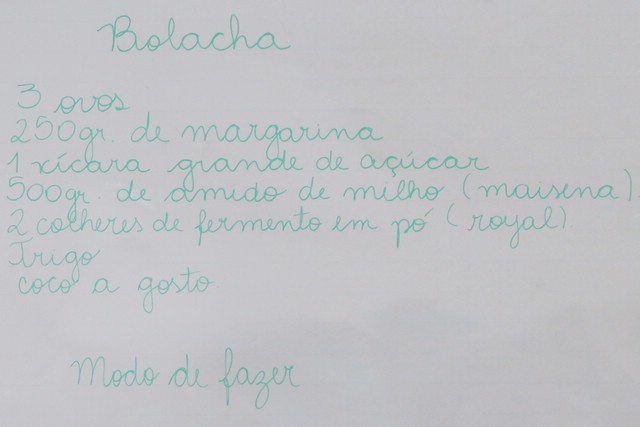 Bolacha
3 ovos
250gr. de margarina
1 xícara grande de açúcar
500gr. de amido de milho (maisena)
2 colheres de fermento em pó (royal).
Trigo
coco a gosto
Modo de fazer